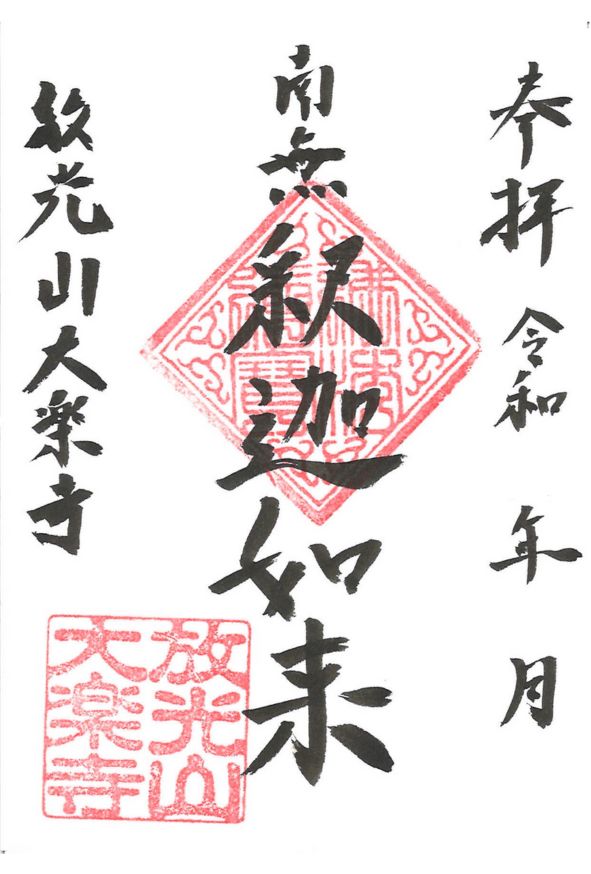 奉拝 令和 年 月
南無釈迦如来
放光山大楽寺
放光山
大楽寺